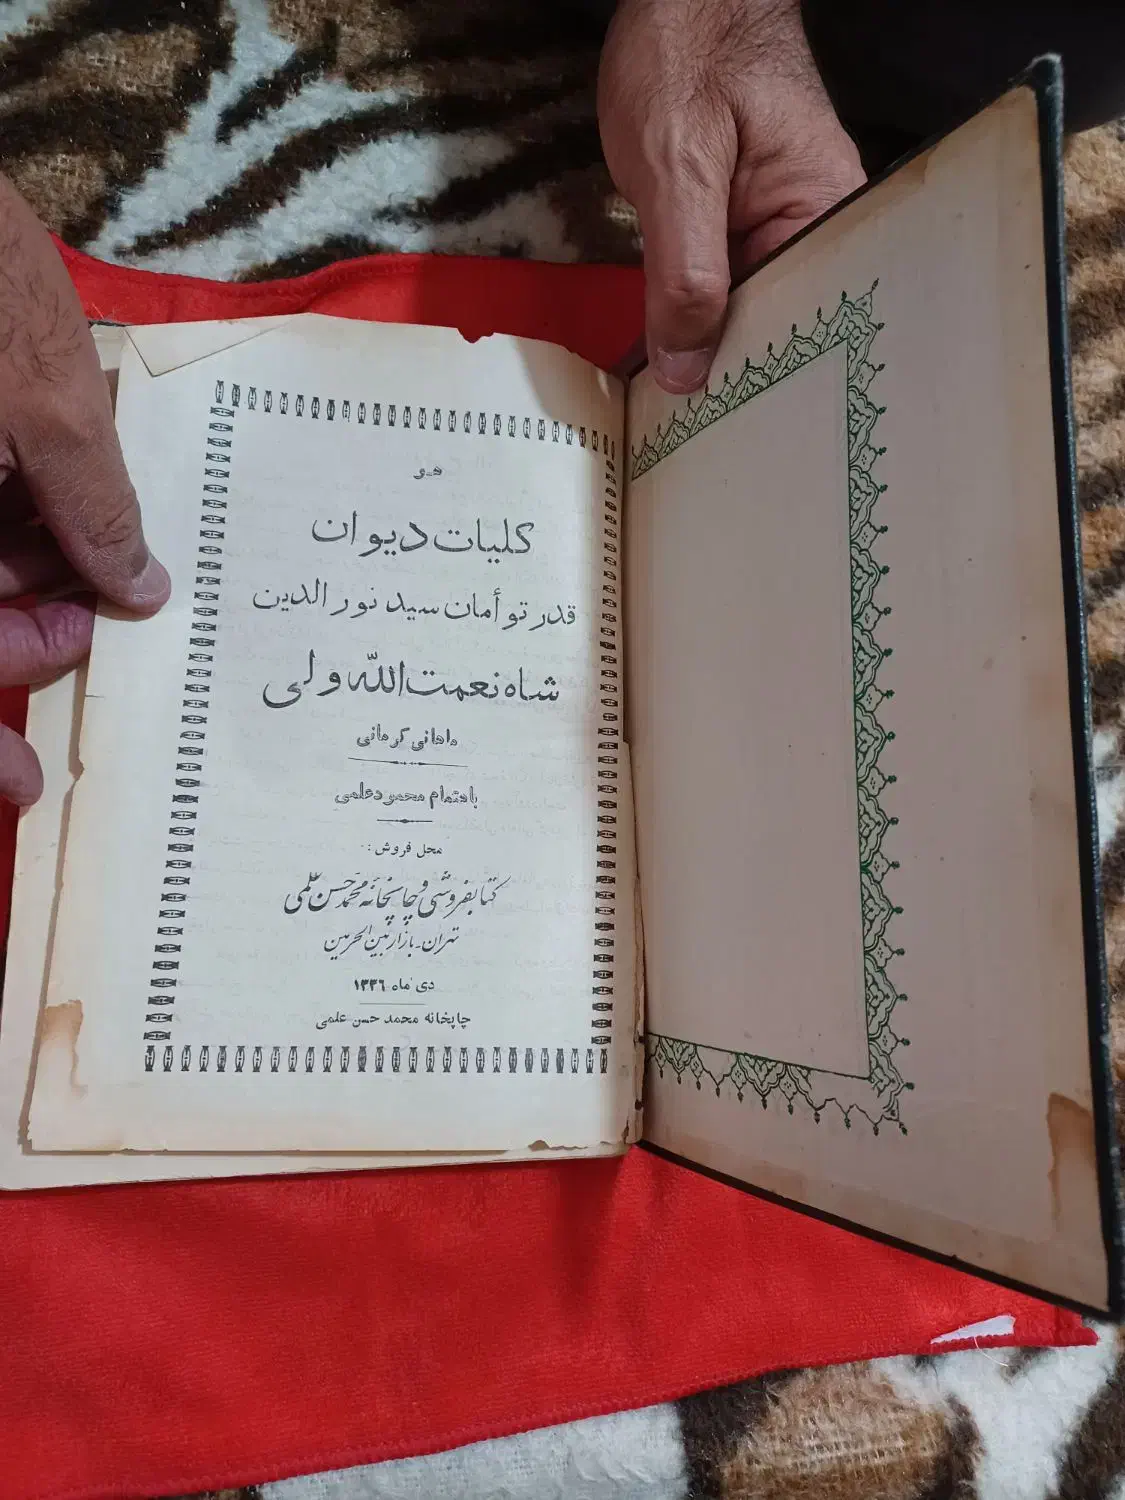 هو
کلیات دیوان
قدر توأمان سید نور الدین
شاه نعمت الله ولی
ماهانی کرمانی
باهتمام محمود علمی
محل فروش :
کتابفروشی و چاپخانه محمد حسن علمی
تهران - بازار بین الحرمین
دی ماه ۱۳۳۶
چاپخانه محمد حسن علمی